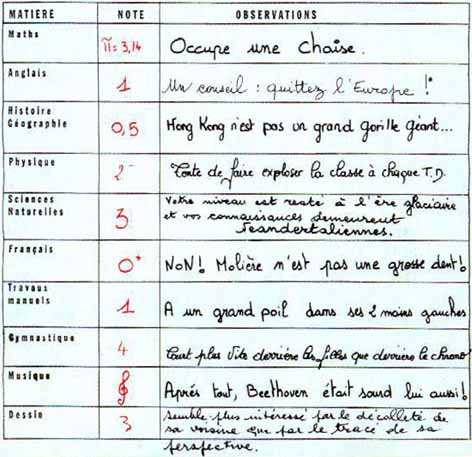 MATIERE NOTE OBSERVATIONS
Maths π=3,14 Occupe une chaise.
Anglais 1 Un conseil : quittez l'Europe !
Histoire
Géographie 0,5 Hong Kong n'est pas un grand gorille géant...
Physique 2- Tente de faire exploser la classe à chaque T.D.
Sciences
Naturelles 3 Votre niveau est resté à l'ère glaciaire
et vos connaissances demeurent
neandertaliennes.
Français 0+ NON! Molière n'est pas une grosse dent!
Travaux
manuels 1 A un grand poil dans ses 2 mains gauches
Gymnastique 4 Court plus vite derrière les filles que derrière le chrono!
Musique Après tout, Beethoven était sourd lui aussi!
Dessin 3 Semble plus intéressé par le décolleté de
sa voisine que par le tracé de sa
perspective.